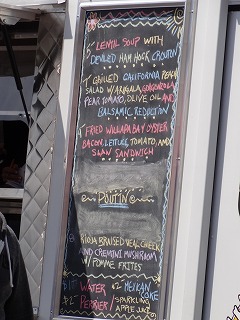 LENTIL SOUP WITH
DEVILED HAM HOCK CROUTON
GRILLED CALIFORNIA PEACH
SALAD W/ ARUGALA, GORGONZOLA
PEAR TOMATO, OLIVE OIL AND
BALSAMIC REDUCTION
FRIED WILLAPA BAY OYSTER
BACON, LETTUCE, TOMATO, AND
SLAW SANDWICH
POUTIN
RIOJA BRAISED VEAL CHEEK
AND CREMINI MUSHROOM
W/ POMME FRITES
WATER $2 MEXICAN
COKE
PERRIER/ SPARKLING
APPLE JUICE